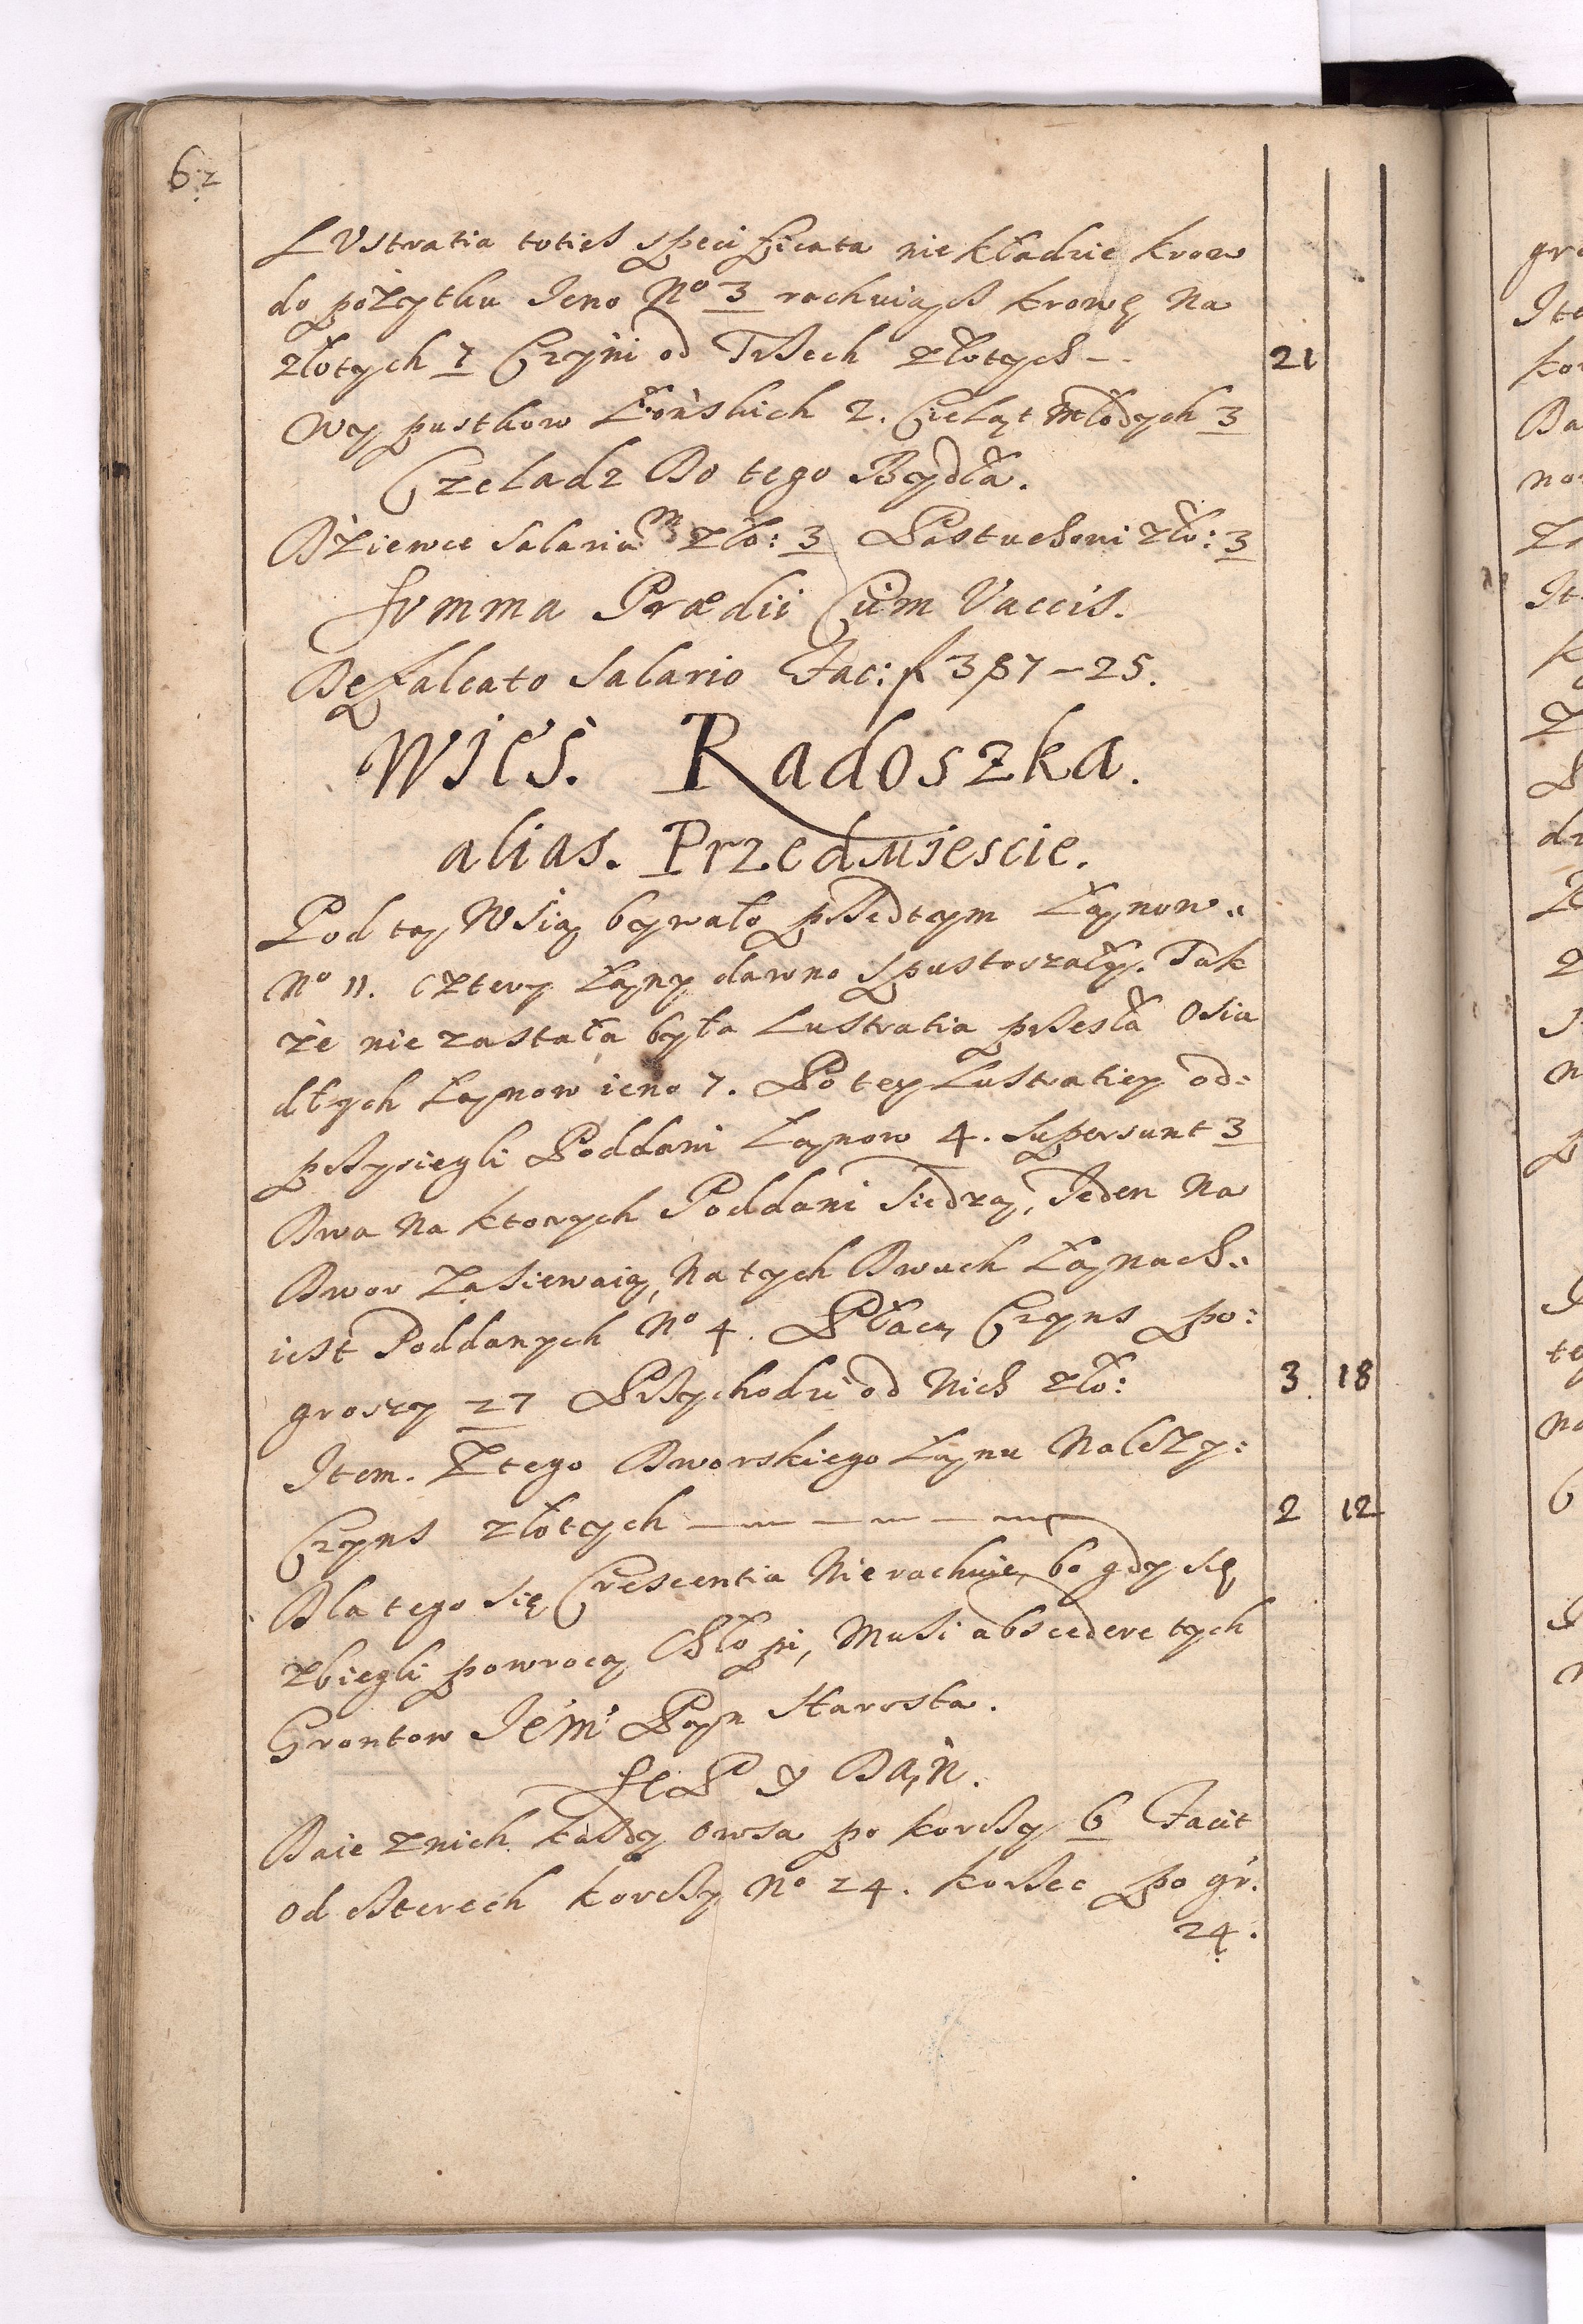 62
LVstratia toties specificata nie kładzie krow
do pożytku Ieno No 3 rachuiąch krowę Na
złotych 7 Czyni od Trzech złotych – 21
Wy pustkow Łońskich 2. Cieląt Młodych 3
Czeladz Do tego Bydła.
Dżiewce Salarium zło: 3 Pastuchowi zło: 3
Summa Prædii Cum Vaccis.
Defalcato Salario Fac: f 387–25.
WIeś. Radoszka.
alias. Przedmiescie.
Pod tą Wsią bywało przedtym Łanow
No 11. Cztery Łany dawno Spustoszały. Tak
że nie zastała była Lustratia przesła Osia
dłych Łanow ieno 7. Po tey Lustratiey od:
przysiegli Poddani Łanow 4. Supersunt 3
Dwa Na ktorych Poddani Siedzą, Jeden Na
Dwor Zasiewaią, Na tych Dwuch Łanach
iest Poddanych No 4. Płacą Czyns po:
groszy 27 Przychodzi od Nich zło: 3. 18
Item. Z tego Dworskiego Łanu Należy:
Czyns złotych 2 12
Dla tego się Crescentia Nie rachuie, bo gdy się
zbiegli powrocą Chłopi, Musi abscedere tych
Grontow Iem: Pan Starosta.
Sep y Dań.
Daie z nich każdy Owsa po korczy 6 Facit
od czterech korczy No 24. korzec po gr.
24.
gro
Ite
kor